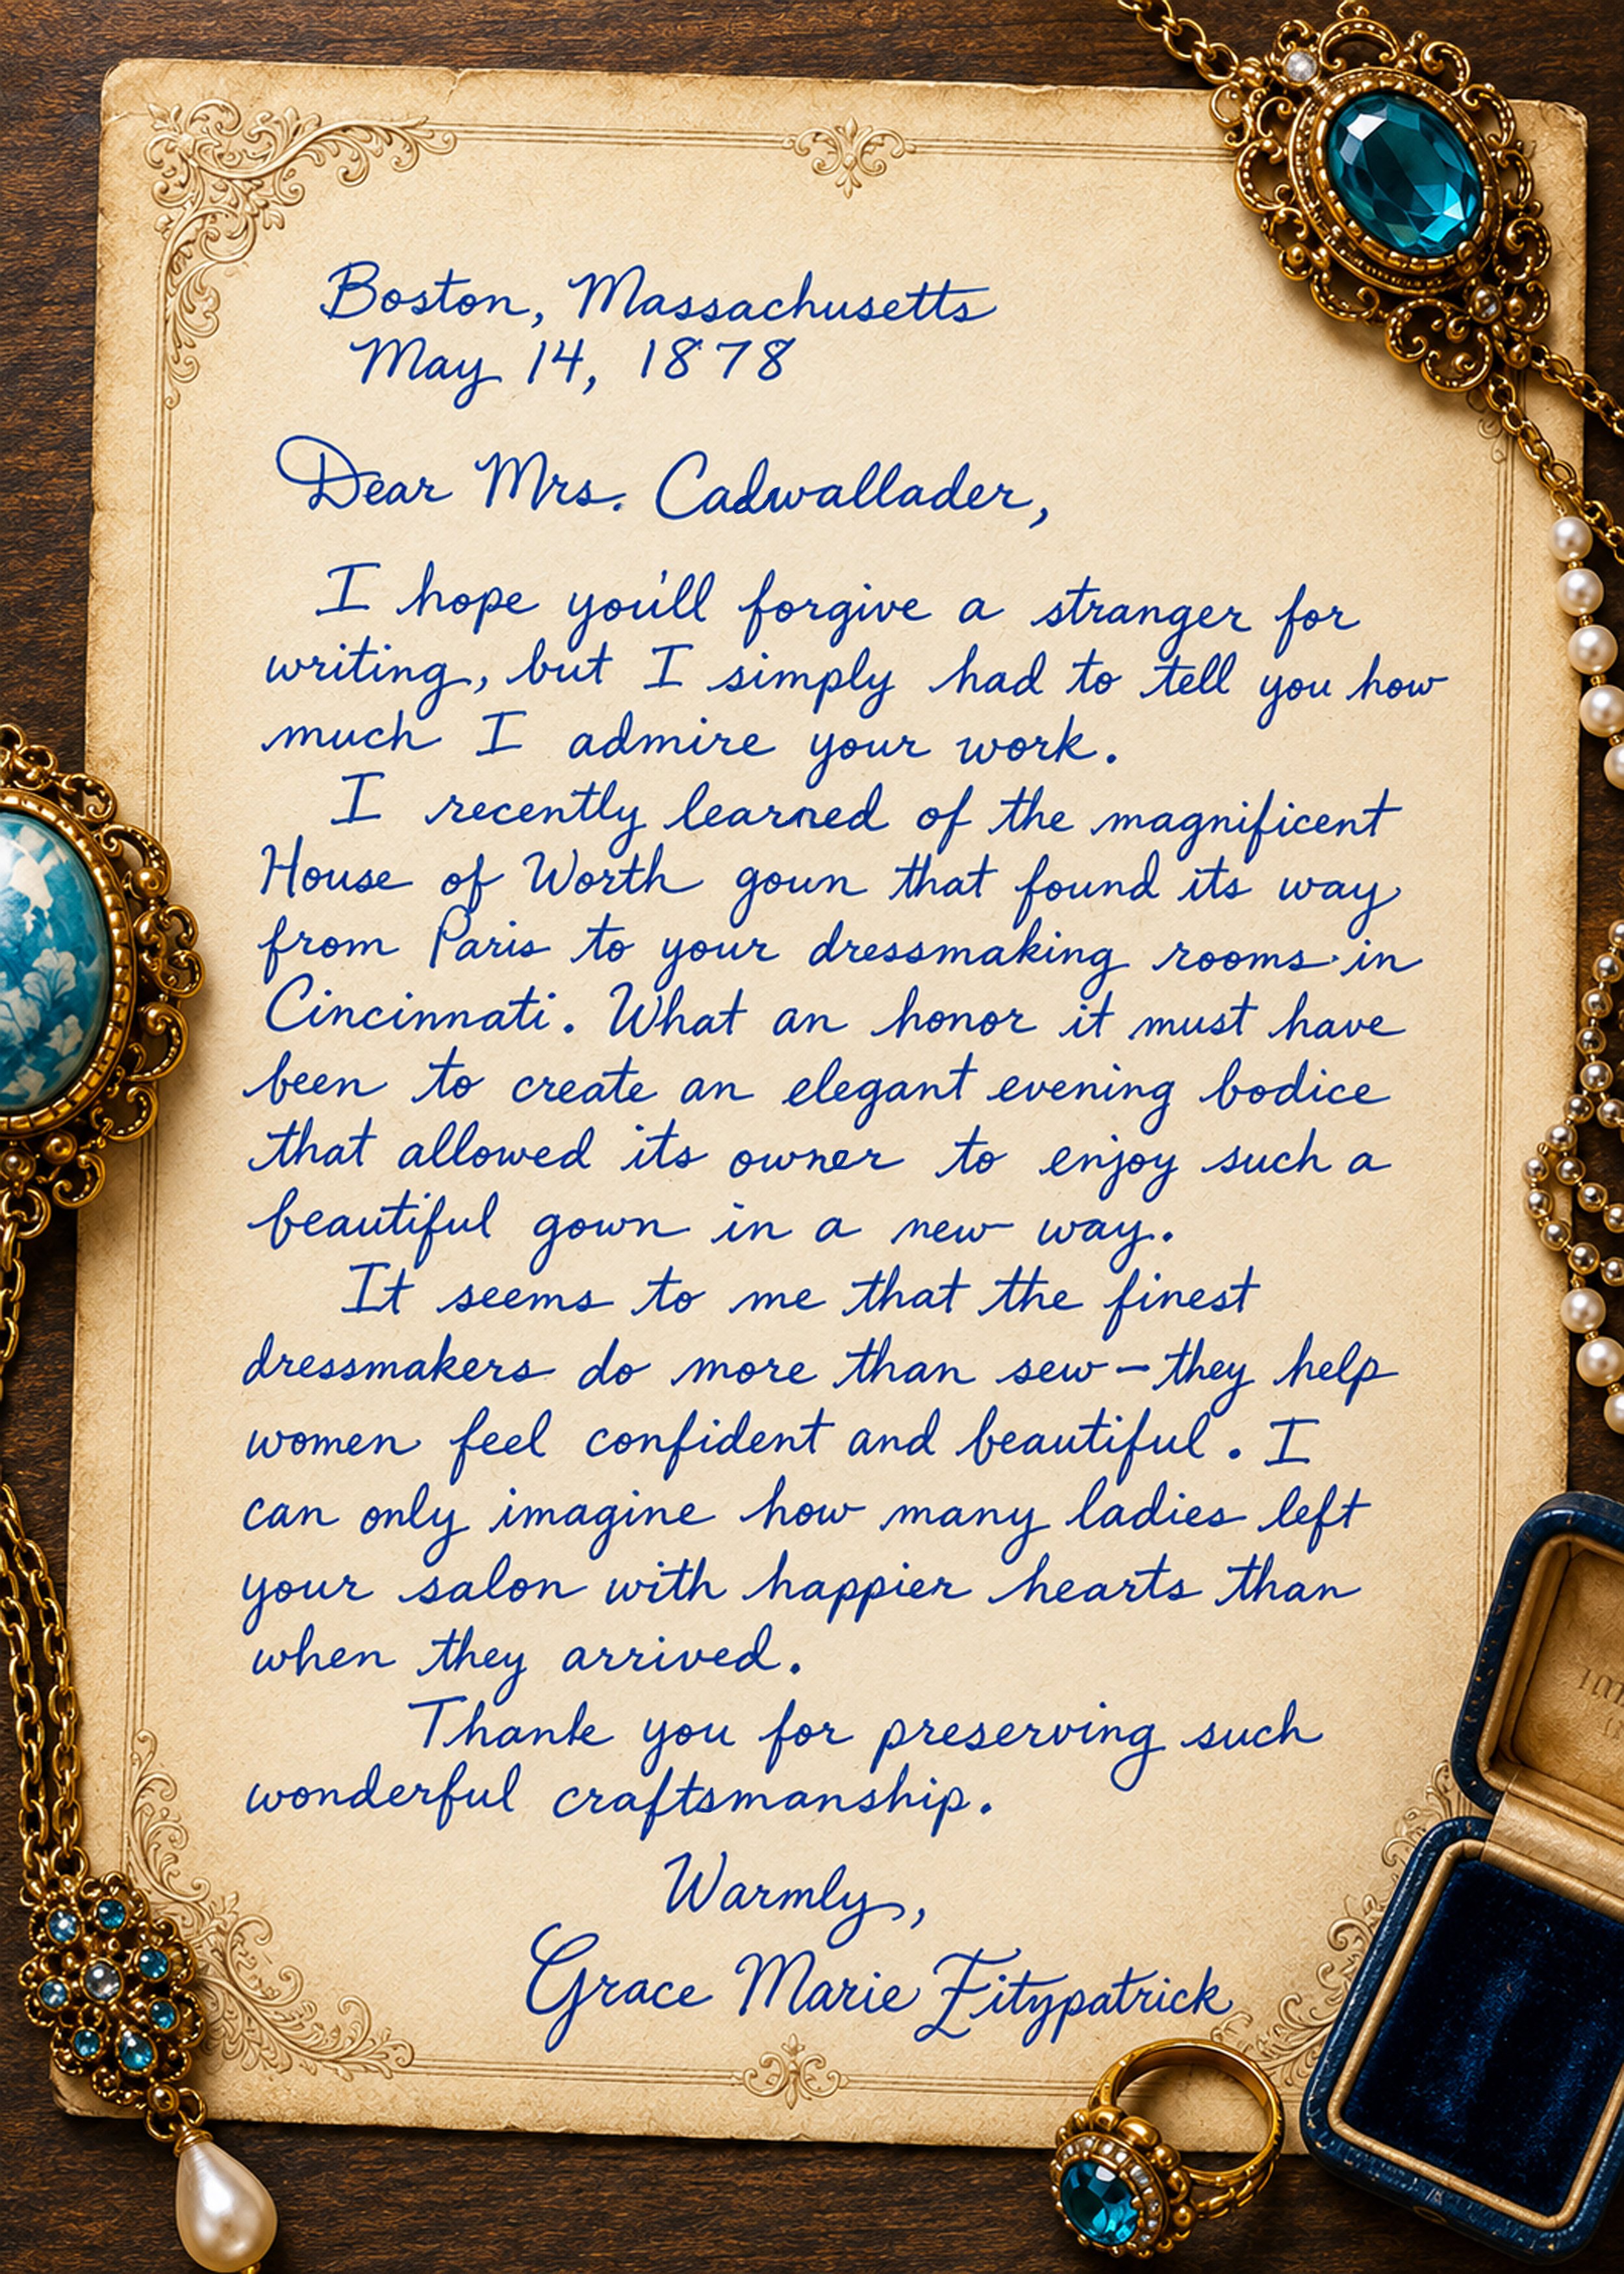 Boston, Massachusetts
May 14, 1878
Dear Mrs. Cadwallader,
I hope you'll forgive a stranger for
writing, but I simply had to tell you how
much I admire your work.
I recently learned of the magnificent
House of Worth goun that found its way
from Paris to your dressmaking rooms in
Cincinnati. What an honor it must have
been to create an elegant evening bodice
that allowed its owner to enjoy such a
beautiful gown in a new way.
It seems to me that the finest
dressmakers do more than sew—they help
women feel confident and beautiful. I
can only imagine how many ladies left
your salon with happier hearts than
when they arrived.
Thank you for preserving such
wonderful craftsmanship.
Warmly,
Grace Marie Fitzpatrick